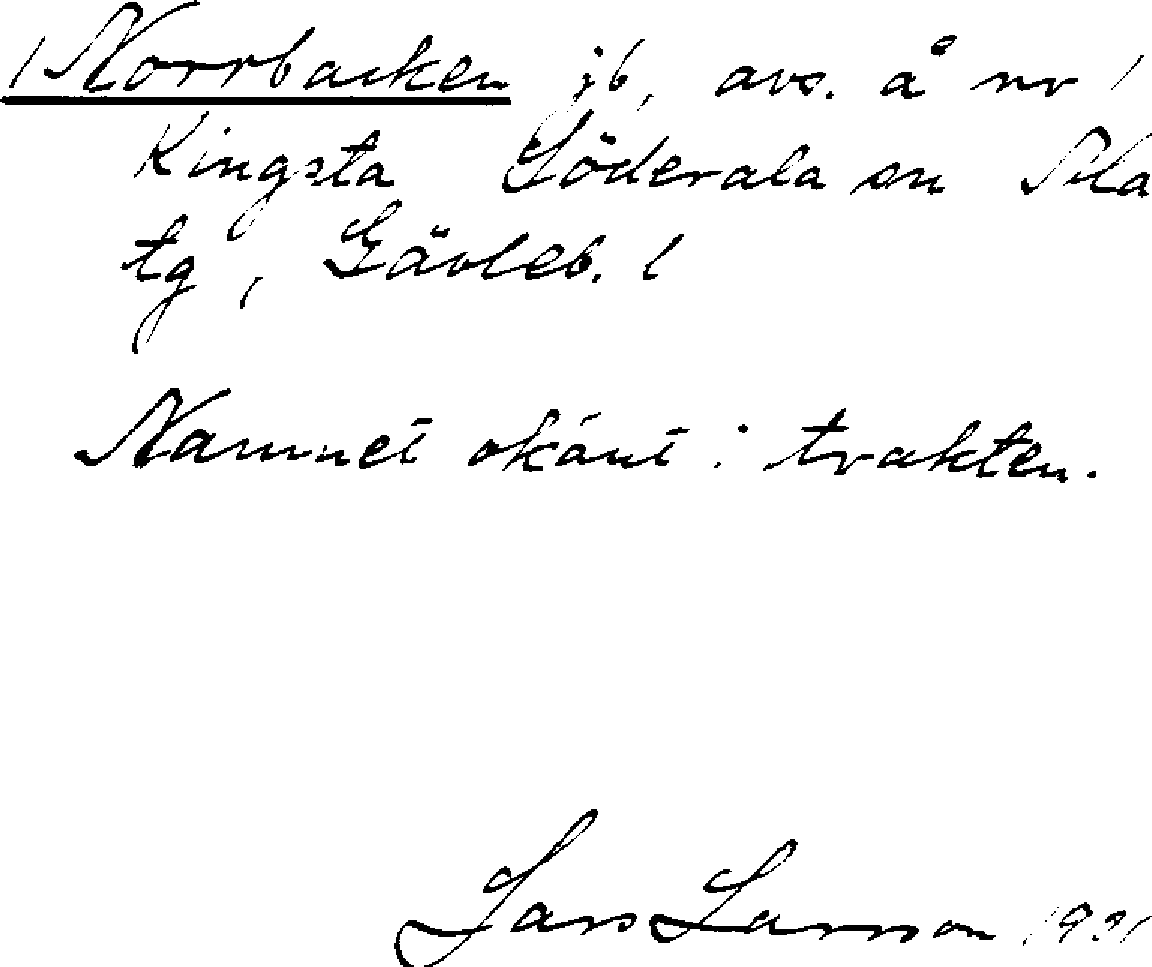 1 Norrbacken jb, avs. å nr 1
Kingsta Söderala sn Ala
tg, Gävleb. l
Namnet okänt i trakten.
Lars Larsson 1931